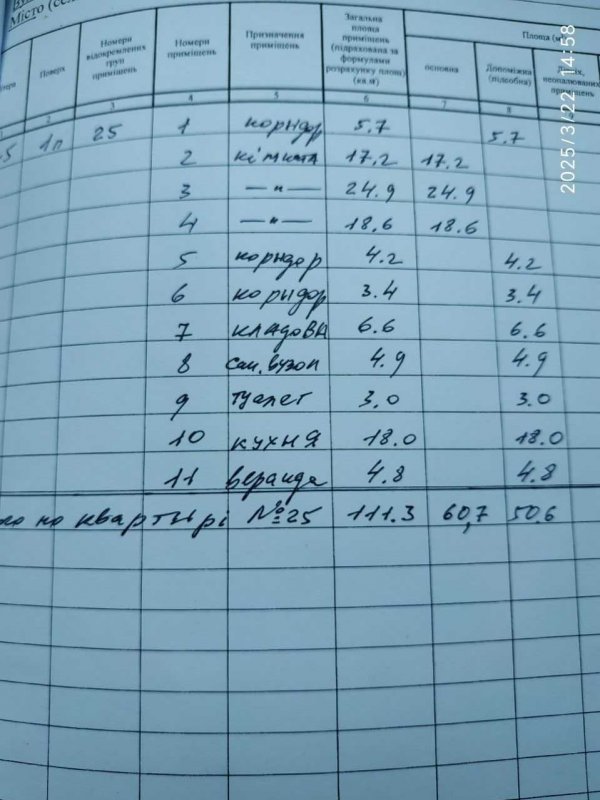 Місто (сел
Номери відокремлених груп приміщень
Поверх
Номери приміщень
Призначення приміщень
Загальна площа приміщень (підрахована за формулами розрахунку площ) (кв.м)
Площа (м
основна
Допоміжна (підсобна)
неопалюваних
2 3 4 5 6 7 8
1п 25 1 коридор 5.7 5.7
2 кімната 17.2 17.2
3 — " — 24.9 24.9
4 — " — 18.6 18.6
5 коридор 4.2 4.2
6 коридор 3.4 3.4
7 кладова 6.6 6.6
8 сан.вузол 4.9 4.9
9 туалет 3.0 3.0
10 кухня 18.0 18.0
11 веранда 4.8 4.8
по квартирі №25 111.3 60,7 50.6
2025/3/22 14:58